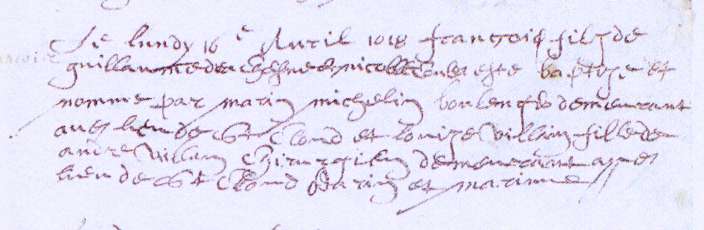 Le lundy 16e Avril 1618 françois filz de
guillaume duchesne et nicolle a este baptize et
nomme par marin michelin boulenger demeurant
audit lieu de St Cloud et Louize Villain fille de
andre Villain Chirurgien demeurant audit
lieu de St Cloud parin et marinne